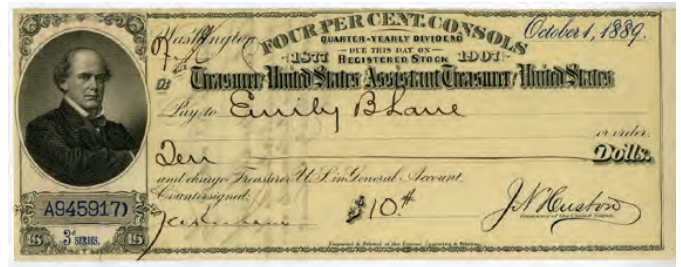 Washington
October 1, 1889.
FOUR PER CENT. CONSOLS
QUARTER-YEARLY DIVIDEND
DUE THIS DAY ON
1877 REGISTERED STOCK 1907
Treasurer United States Assistant Treasurer United States
Pay to Emily B Lane
or order.
Ten Dolls.
and charge Transfer U.S. in General Account.
Countersigned:
A945917)
$10.
J N Huston
Treasurer of the United States.
15 3d SERIES. 15